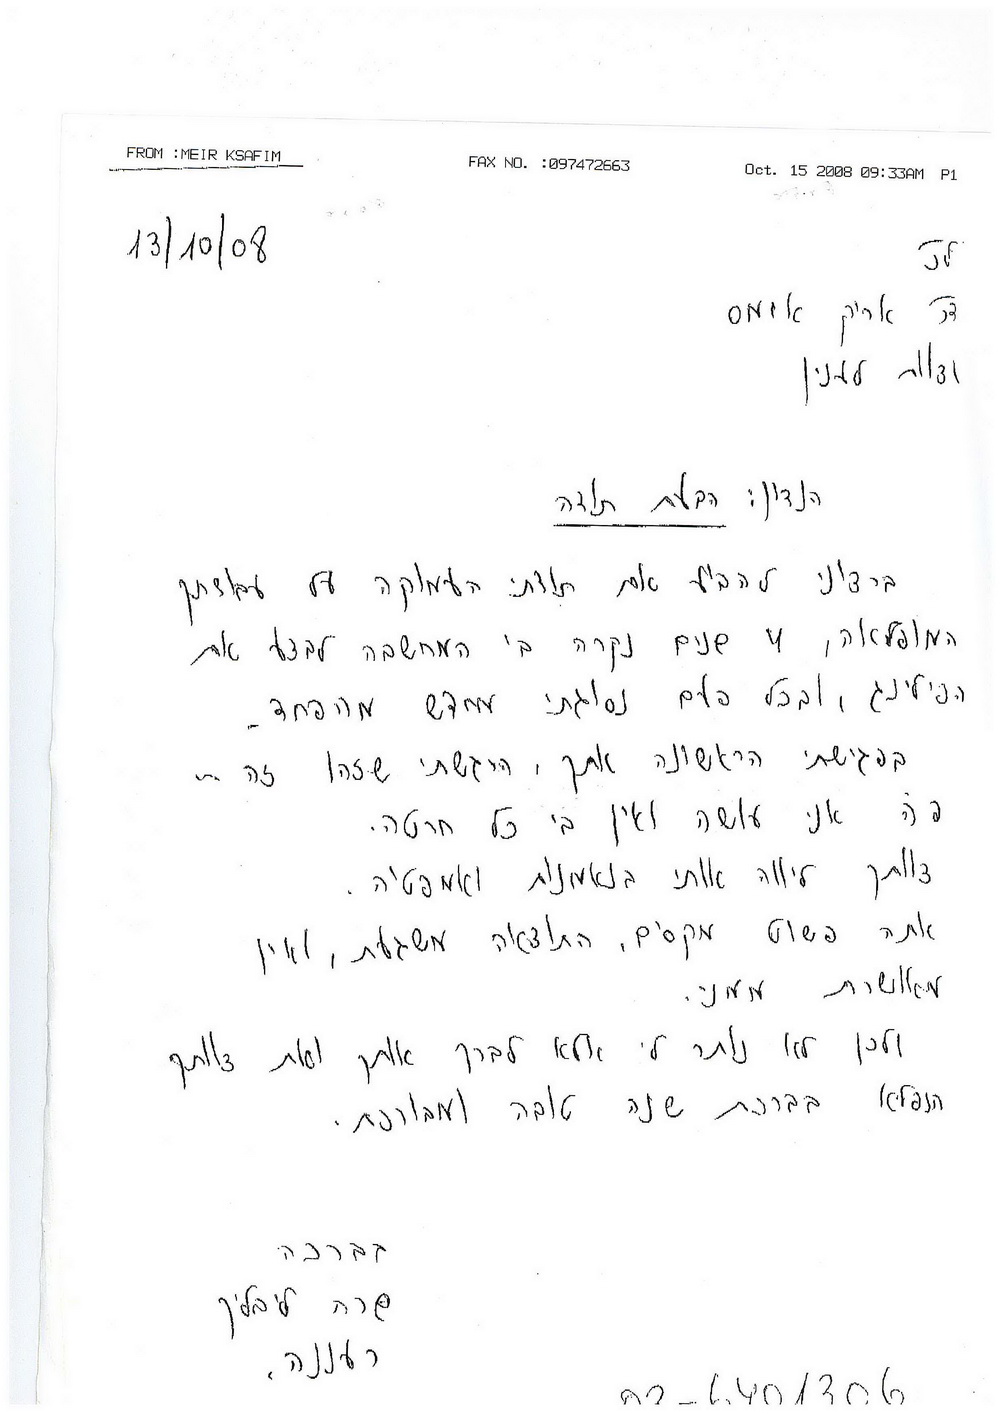 FROM :MEIR KSAFIM FAX NO. :097472663 Oct. 15 2008 09:33AM P1
13/10/08
לכ'
דר' אריק אזמס
וצוות למנין
הנדון: הבעת תודה
ברצוני להביע את תודתי העמוקה על עבודתך
המופלאה, 4 שנים נקרה בי המחשבה לבצע את
הפילינג, ובכל פעם נסוגתי מחדש מהפחד.
בפגישתי הראשונה אתך, הרגשתי שזהו זה ...
פה אני עושה ואין בי כל חרטה.
צוותך ליווה אותי בנאמנות ואמפטיה.
אתה פשוט מקסים, התוצאה משגעת, ואין
מאושרת ממני.
ולכן לא נותר לי אלא לברך אותך ואת צוותך
הנפלא בברכת שנה טובה ומבורכת.
בברכה
שרה ליבליך
רעננה.